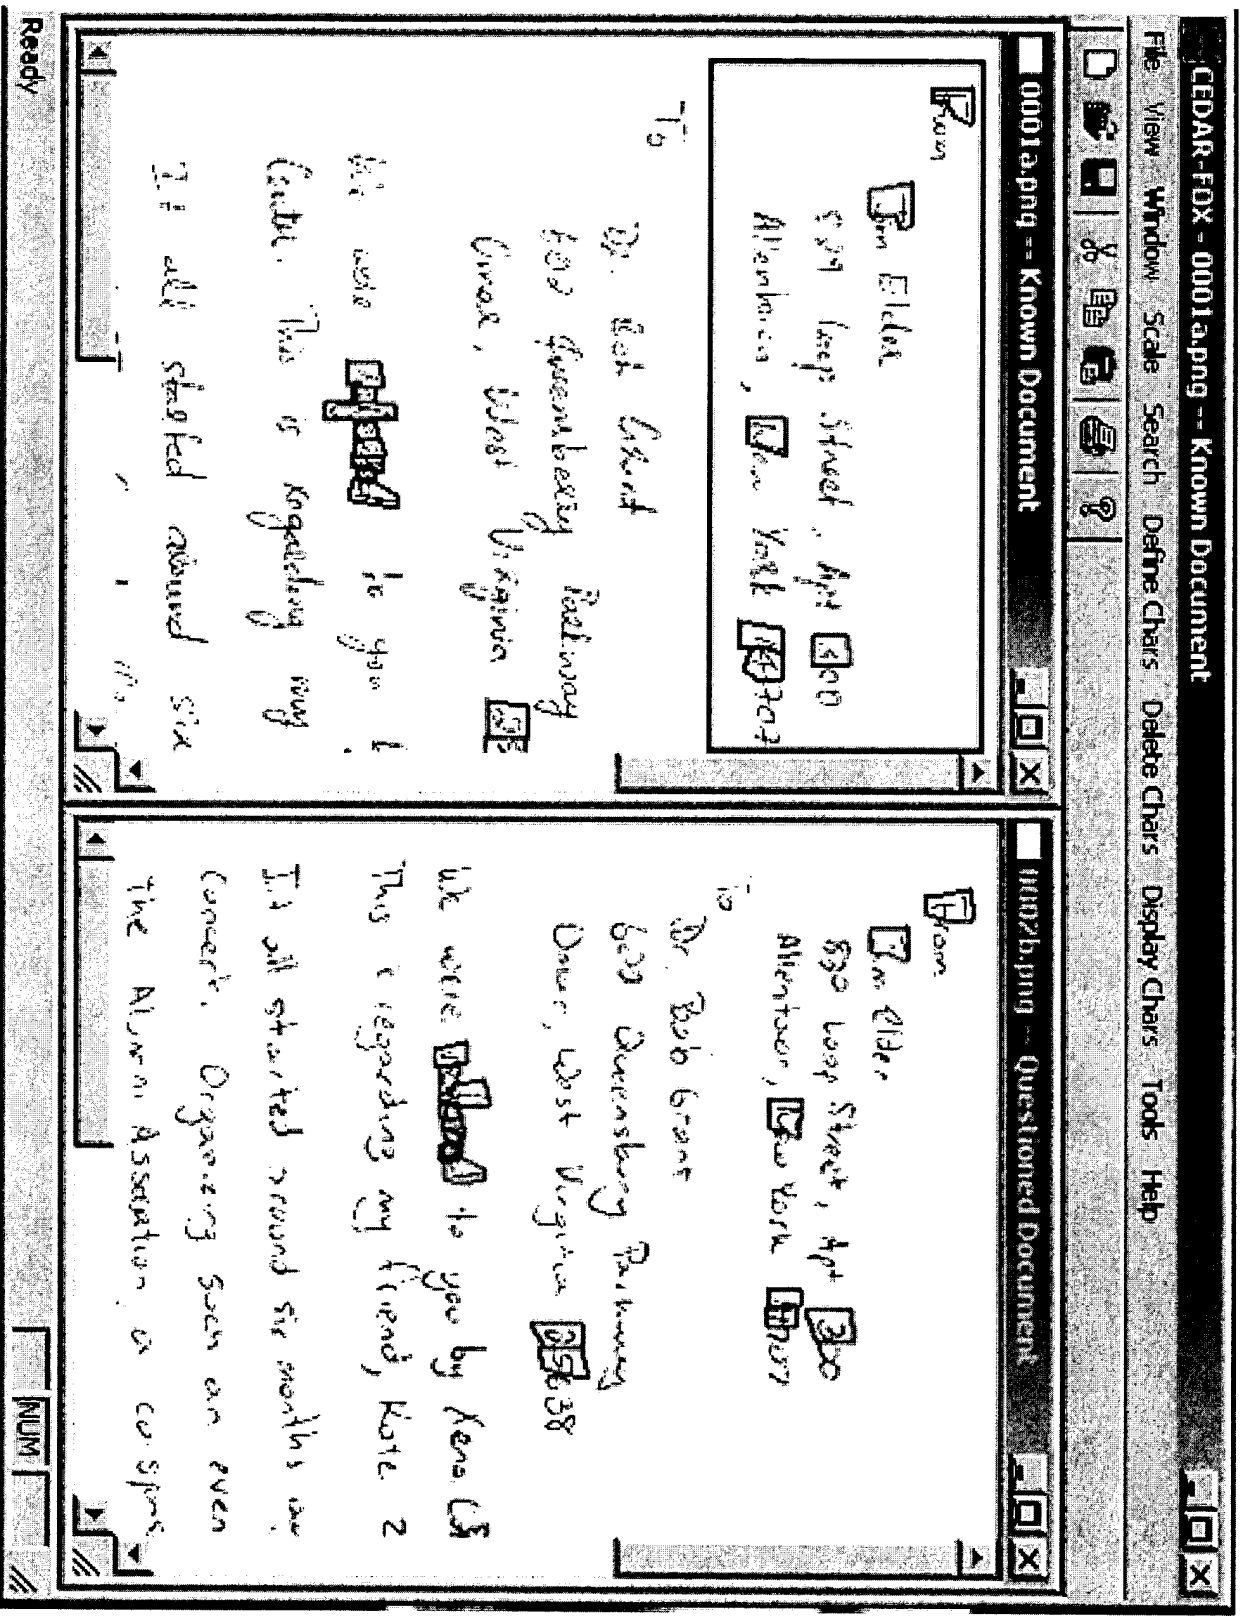 CEDAR-FOX - 0001a.png -- Known Document
File View Window Scale Search Define Chars Delete Chars Display Chars Tools Help
0001a.png -- Known Document
From
Jim Elder
829 Loop Street, Apt 300
Allentown, New York 14707
To
Dr. Bob Grant
602 Queensberry Parkway
Omar, West Virginia
We were to you
Center. This is regarding my
It all started around six
0002b.png -- Questioned Document
From
Jim Elder
829 Loop Street, Apt 300
Allentown, New York 14707
To
Dr. Bob Grant
602 Queensbury Parkway
Omar, West Virginia 25638
We were to you by Xena
This is regarding my friend, Kate
It all started around six months
Concert. Organizing such an even
The Alumni Association a co-spons
Ready
NUM